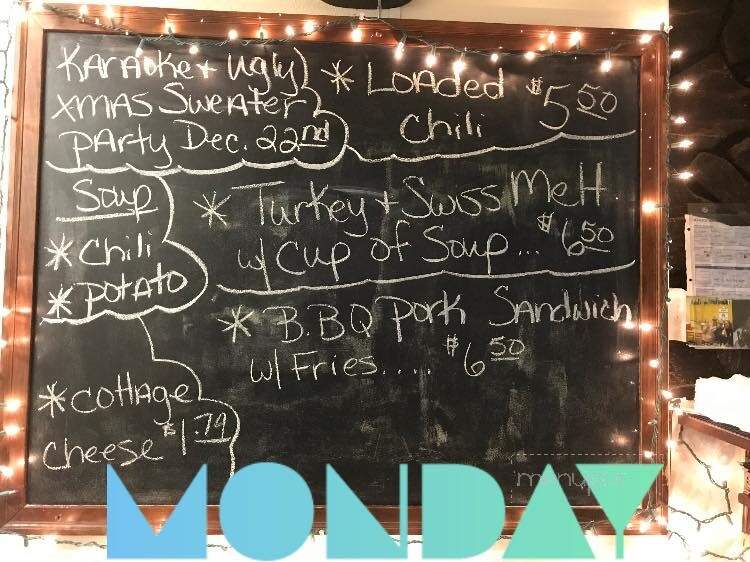 Karaoke + Ugly
Xmas Sweater
Party Dec. 22nd
Soup
* Chili
* Potato
* Cottage
Cheese $1.79
* Loaded $5.50
Chili
* Turkey + Swiss Melt
w/ Cup of Soup... $6.50
* B.BQ Pork Sandwich
w/ Fries..... $6.50
MONDAY